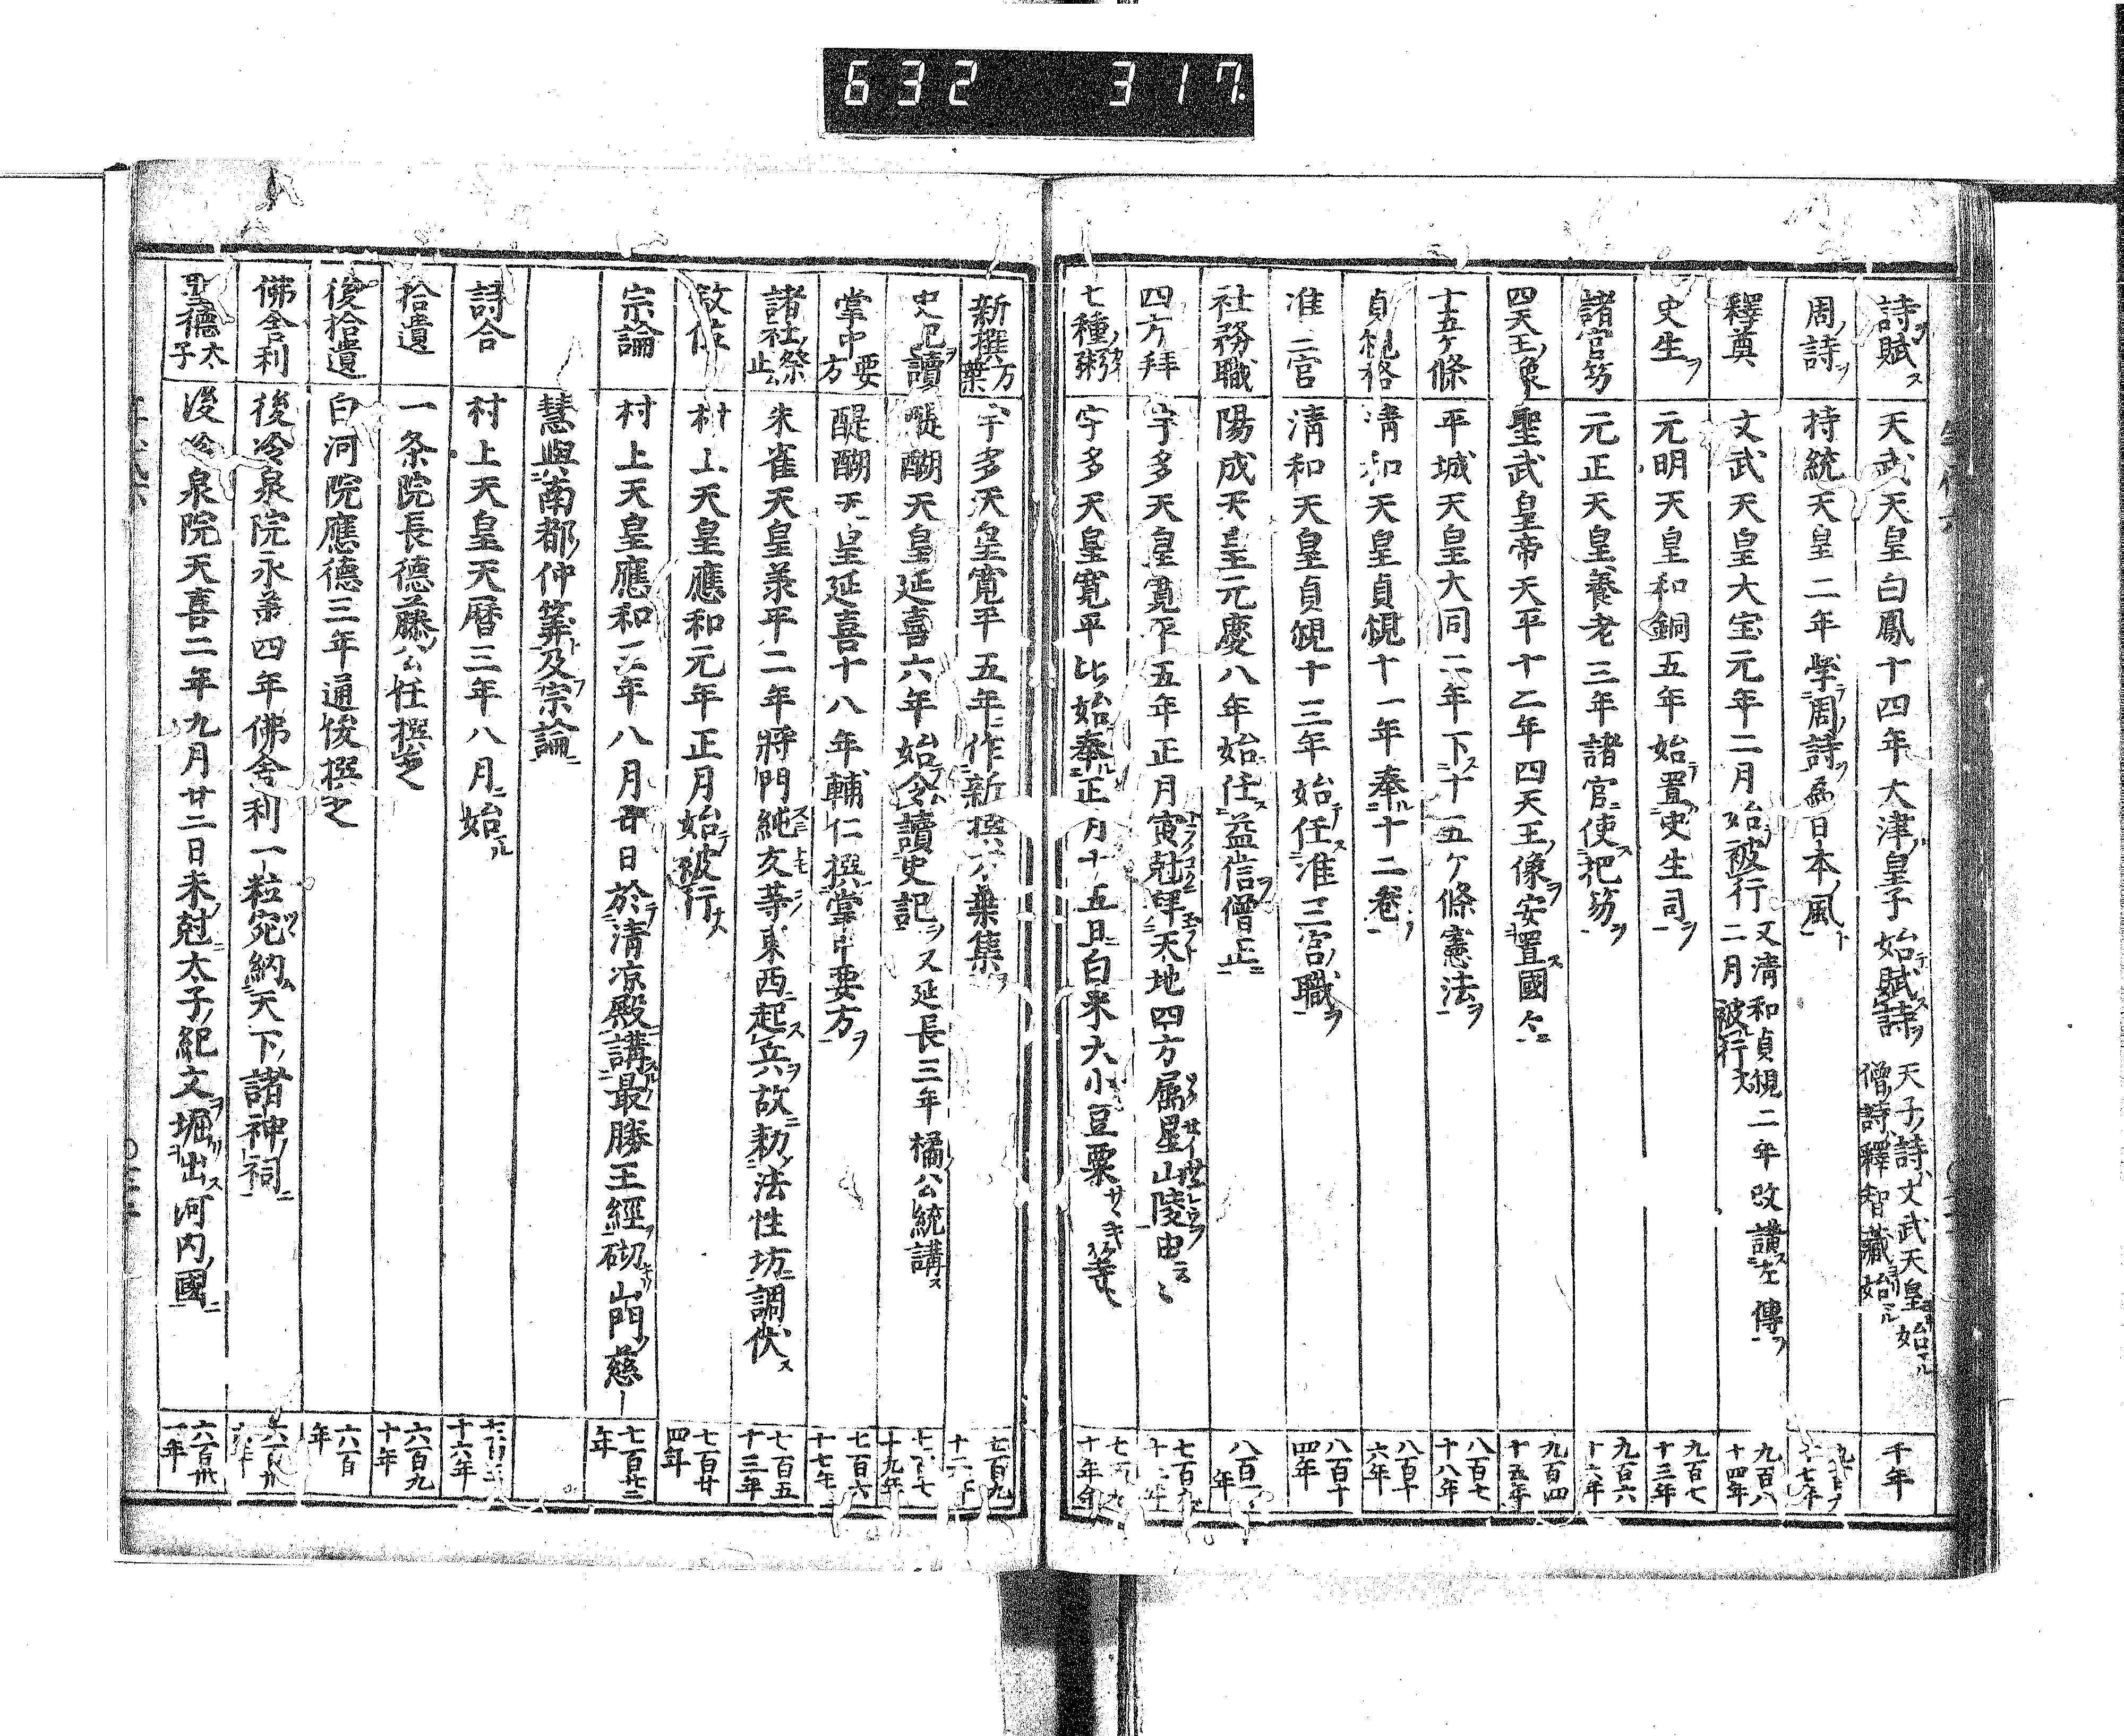 632 317.
詩賦ス 天武天皇白鳳十四年大津皇子始テ賦ス詩ヲ 天子ノ詩ハ文武天皇ヨリ始マル 僧ノ詩ハ釋智藏ヨリ始マル 千年
周ノ詩ヲ 持統天皇二年學テ周ノ詩ヲ為日本ノ風ト
釋奠 文武天皇大宝元年二月始テ被行 又清和貞観二年改講ス左傳ヲ 二月被行 九百八十四年
史生ヲ 元明天皇和銅五年始テ置史生司ヲ 九百七十三年
諸官笏 元正天皇養老三年諸官ニ使把笏ヲ 九百六十六年
四天王ノ像 聖武皇帝天平十二年四天王ノ像ヲ安置ス國々ニ 九百四十五年
十五ケ條 平城天皇大同二年下ス十五ケ條憲法ヲ 八百七十八年
貞観格 清和天皇貞観十一年奉ル十二卷ヲ 八百十六年
准三宮 清和天皇貞観十三年始テ任ス准三宮ノ職ヲ 八百十四年
社務職 陽成天皇元慶八年始任ス益信ヲ僧正ニ
四方拜 宇多天皇寛平五年正月寅尅拜天地四方属星山陵由云々
七種ノ粥 宇多天皇寛平比始奉ル正月十五日白米大小豆粟サヽキ等
新撰万葉 宇多天皇寛平五年作新撰万葉集ヲ
史記讀ヲ 醍醐天皇延喜六年始テ令讀史記ヲ又延長三年橘ノ公統講ス
掌中要方 醍醐天皇延喜十八年輔仁撰掌中要方ヲ 七百六十七年
諸社ノ祭止ム 朱雀天皇承平二年將門純友等東西ニ起ス兵ヲ故ニ勅ノ法性坊ニ調伏ス 七百五十三年
敘位 村上天皇應和元年正月始テ被行ハ 七百廿四年
宗論 村上天皇應和三年八月廿日於テ清凉殿ニ講スル最勝王經ヲ砌山門ノ慈ー 七百廿二年
慧與南都ノ仲算及宗論ニ
詩合 村上天皇天暦三年八月ニ始ル
拾遺 一条院長徳藤ノ公任撰之 六百九十年
後拾遺 白河院應徳三年通俊撰之 六百年
佛舎利 後冷泉院永承四年佛舎利一粒宛納ム天下ノ諸神ノ祠ニ
聖徳太子 後冷泉院天喜二年九月廿二日未ノ尅ニ太子ノ紀文ヲ堀出ス河内ノ國ニ 六百卅一年